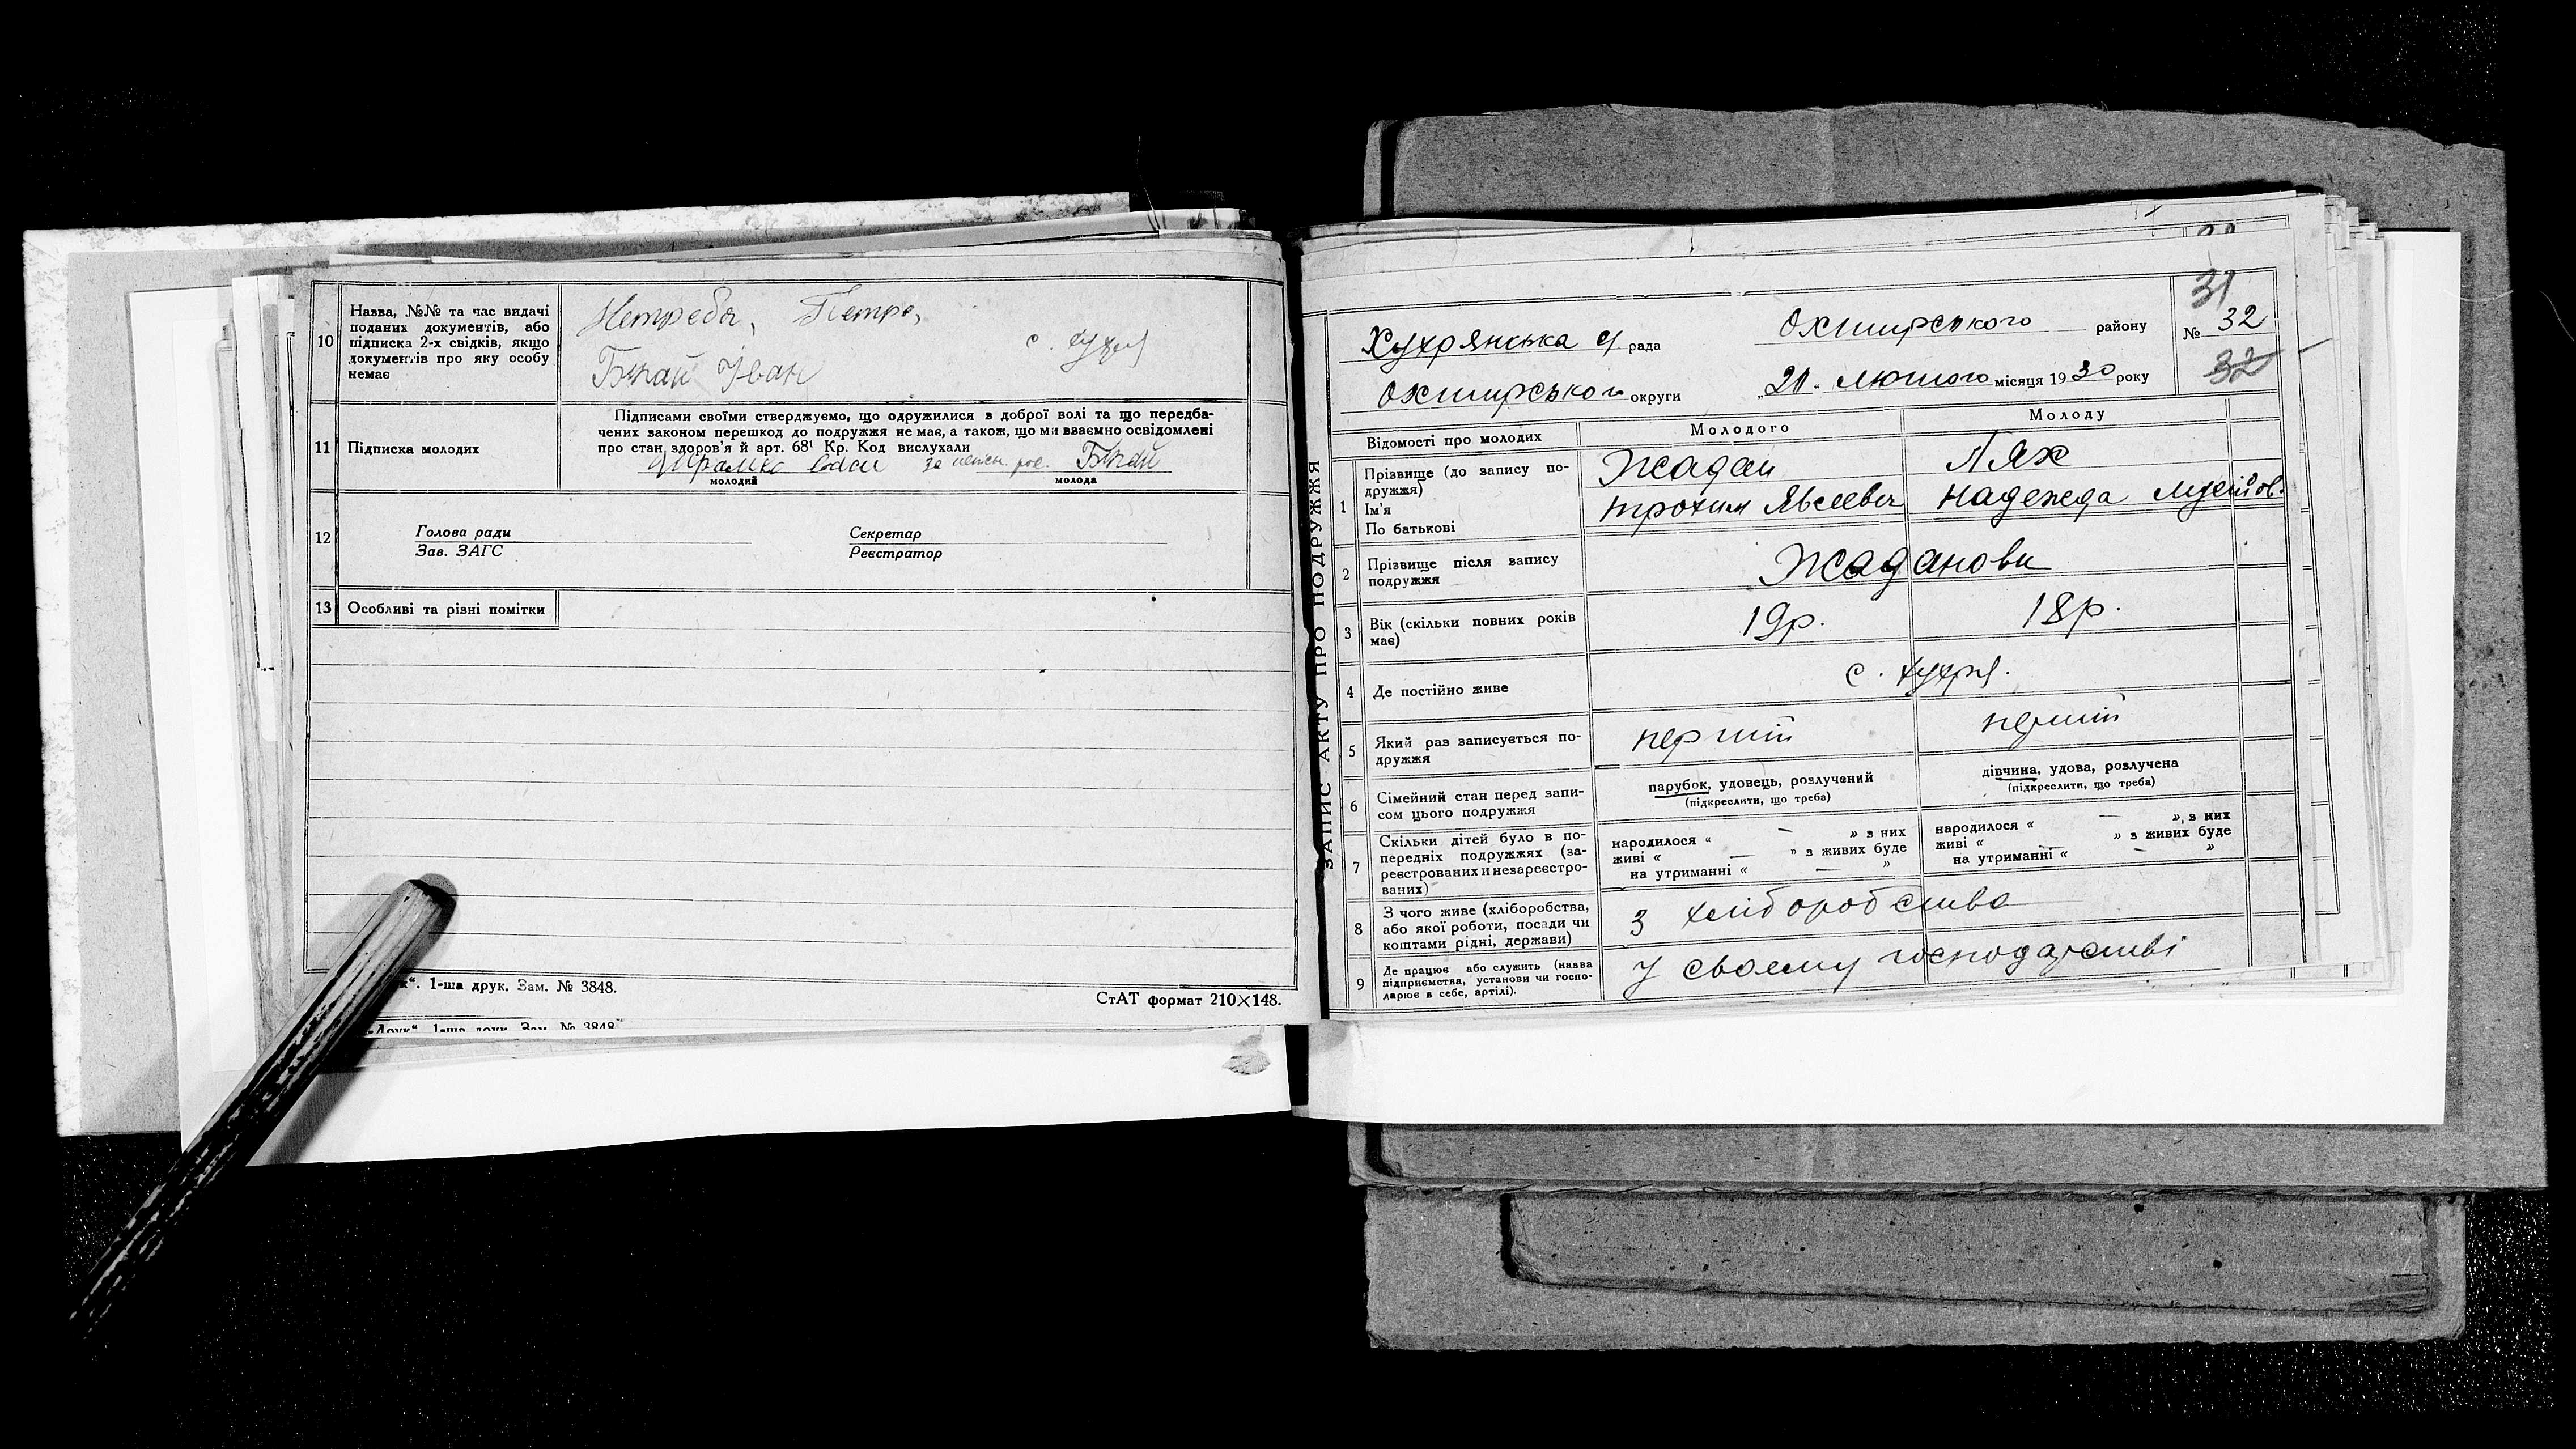 10
Назва, №№ та час видачі
поданих документів, або
підписка 2-х свідків, якщо
документів про яку особу
немає
Нетреба, Петро,
с. Хухря
Бткай Іван
11
Підписка молодих
Підписами своїми стверджуємо, що одружилися в доброї волі та що передба-
чених законом перешкод до подружжя не має, а також, що ми взаємно освідомлені
про стан здоров'я й арт. 68¹ Кр. Код вислухали
за
молодий
молода
12
Голова ради
Зав. ЗАГС
Секретар
Реєстратор
13
Особливі та різні помітки
к“. 1-ша друк. Зам. № 3848.
СтАТ формат 210×148.
-Друк“ 1-ша друк. Зам. № 3848
ЗАПИС АКТУ ПРО ПОДРУЖЖЯ
Хухрянська с/рада
Охтирського району
Охтирського округи
„21“ лютого місяця 1930 року
31
№ 32
32
Відомості про молодих
Молодого
Молоду
1
Прізвище (до запису по-
дружжя)
Ім'я
По батькові
Жадан
Трохим Явсеевич
Лях
Надежда
2
Прізвище після запису
подружжя
Жаданови
3
Вік (скільки повних років
має)
19р.
18р.
4
Де постійно живе
с. Хухря.
5
Який раз записується по-
дружжя
перший
перший
6
Сімейний стан перед запи-
сом цього подружжя
парубок, удовець, розлучений
(підкреслити, що треба)
дівчина, удова, розлучена
(підкреслити, що треба)
7
Скільки дітей було в по-
передніх подружжях (за-
реєстрованих и незареєстро-
ваних)
народилося « — » з них
живі « — » з живих буде
на утриманні « — »
народилося « — », з них
живі « — » з живих буде
на утриманні « — »
8
З чого живе (хліборобства,
або якої роботи, посади чи
коштами рідні, держави)
З хліборобства
9
Де працює або служить (назва
підприємства, установи чи госпо-
дарює в себе, артілі).
У своєму господарстві